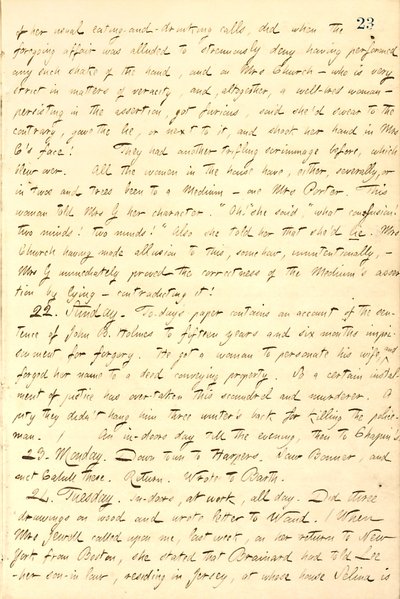 23
of her usual eating-and-drinking calls, did when the
foregoing affair was alluded to strenuously deny having performed
any such shake of the hand, and on Mrs Church - who is very
strict in matters of veracity, and, altogether, a well-bred woman -
persisting in the assertion, got furious, said she'd swear to the
contrary, gave the lie, or next to it, and shook her hand in Mrs
C's face! They had another trifling scrimmage before, which
blew over. All the women in the house have, either, severally, or
in twos and trees been to a Medium - one Mrs Porter. This
woman told Mrs G her character. "Oh! she said, what confusion!
two minds! two minds!" Also she told her that she'd lie. Mrs
Church having made allusion to this, somehow, unintentionally, -
Mrs G immediately proved the correctness of the Medium's asser
tion by lying - contradicting it!
22. Sunday. To-days paper contains an account of the sen-
tence of John B. Holmes to fifteen years and six months impri-
sonment for forgery. He got a woman to personate his wife, and
forged her name to a deed conveying property. So a certain instal-
ment of justice has over-taken this scoundrel and murderer. A
pity they didn't hang him three winter's back for killing the police-
man. / An in-doors day till the evening, then to Chapin's.
23. Monday. Down town to Harpers. Saw Bonner, and
met Cahill there. Return. Wrote to Barth.
24. Tuesday. In-dors, at work, all day. Did three
drawings on wood and wrote letter to Waud. / When
Mrs Jewell called upon me, last week, on her return to New
York from Boston, she stated that Brainard had told Lee
- her son-in law, residing in Jersey, at whose house Selina is